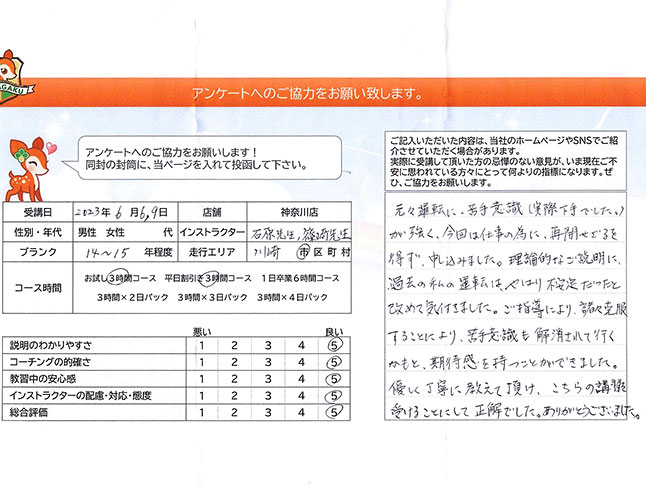 GAKU
アンケートへのご協力をお願い致します。
アンケートへのご協力をお願いします！
同封の封筒に、当ページを入れて投函して下さい。
受講日 2023年 6月 6,9日 店舗 神奈川店
性別・年代 男性 女性 代 インストラクター 石原先生, 篠崎先生
ブランク 14〜15 年程度 走行エリア 川崎 市区町村
コース時間 お試し3時間コース 平日割引き3時間コース 1日卒業6時間コース
3時間×2日パック 3時間×3日パック 3時間×4日パック
悪い 良い
説明のわかりやすさ 1 2 3 4 5
コーチングの的確さ 1 2 3 4 5
教習中の安心感 1 2 3 4 5
インストラクターの配慮・対応・態度 1 2 3 4 5
総合評価 1 2 3 4 5
ご記入いただいた内容は、当社のホームページやSNSでご紹
介させていただく場合があります。
実際に受講して頂いた方の忌憚のない意見が、いま現在ご不
安に思われている方々にとって何よりの指標になります。ぜ
ひ、ご協力をお願いします。
元々運転に、苦手意識(実際下手でした。)
が強く、今回は仕事の為に、再開せざるを
得ず、申し込みました。理論的なご説明に、
過去の私の運転は、やはり不安定だったと
改めて気付きました。ご指導により、諸々克服
することにより、苦手意識も解消されて行く
かもと、期待感を持つことができました。
優しく丁寧に教えて頂け、こちらの講習を
受けることにして正解でした。ありがとうございました。